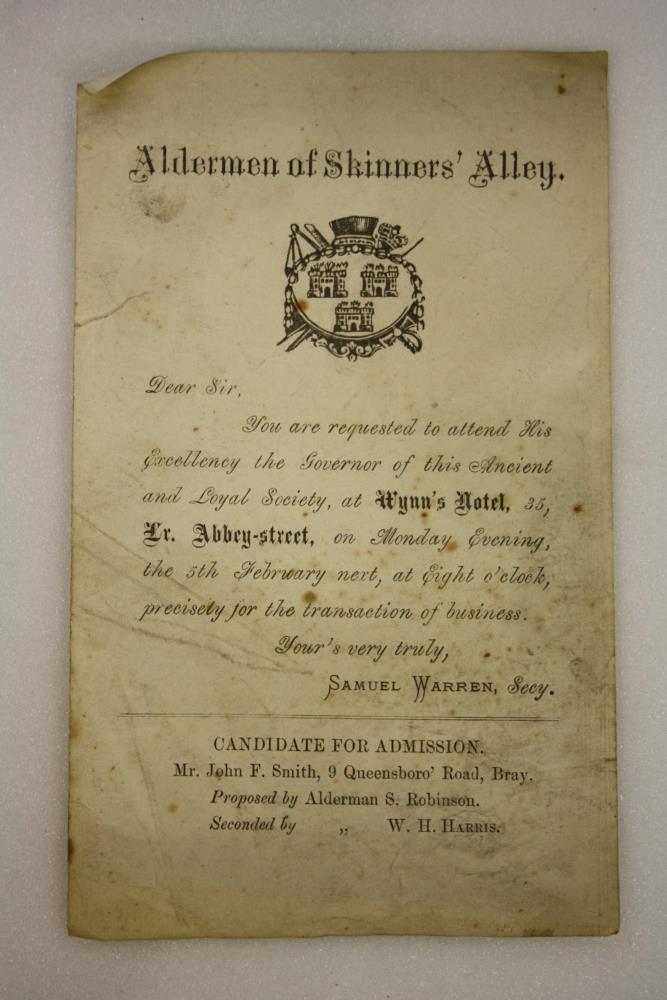 Aldermen of Skinners' Alley.
Dear Sir,
You are requested to attend His
Excellency the Governor of this Ancient
and Loyal Society, at Wynn's Hotel, 35,
Lr. Abbey-street, on Monday Evening,
the 5th February next, at Eight o'clock,
precisely for the transaction of business.
Your's very truly,
SAMUEL WARREN, Secy.
CANDIDATE FOR ADMISSION.
Mr. John F. Smith, 9 Queensboro' Road, Bray.
Proposed by Alderman S. Robinson.
Seconded by „ W. H. HARRIS.